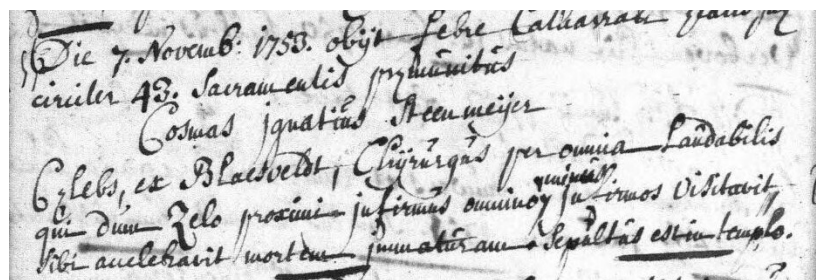 Die 7. Novemb: 1753. obijt febre Catharrali
circiter 43. Sacramentis præmunitus
Cosmas Ignatius Steenmeijer
Cælebs, ex Blaesveldt, Chijrurgus per omnia Laudabilis
qui dum Zelo proximi infirmus omnino infirmos visitavit,
sibi acceleravit mortem immaturam. Sepultus est in templo.